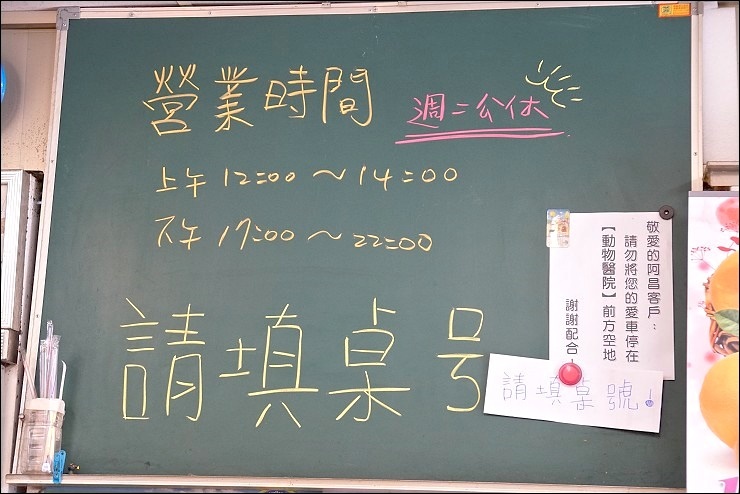 營業時間
週二公休
上午 12:00 ～ 14:00
下午 17:00 ～ 22:00
請填桌号
敬愛的阿昌客戶：
請勿將您的愛車停在
【動物醫院】前方空地
謝謝配合
請填桌號!